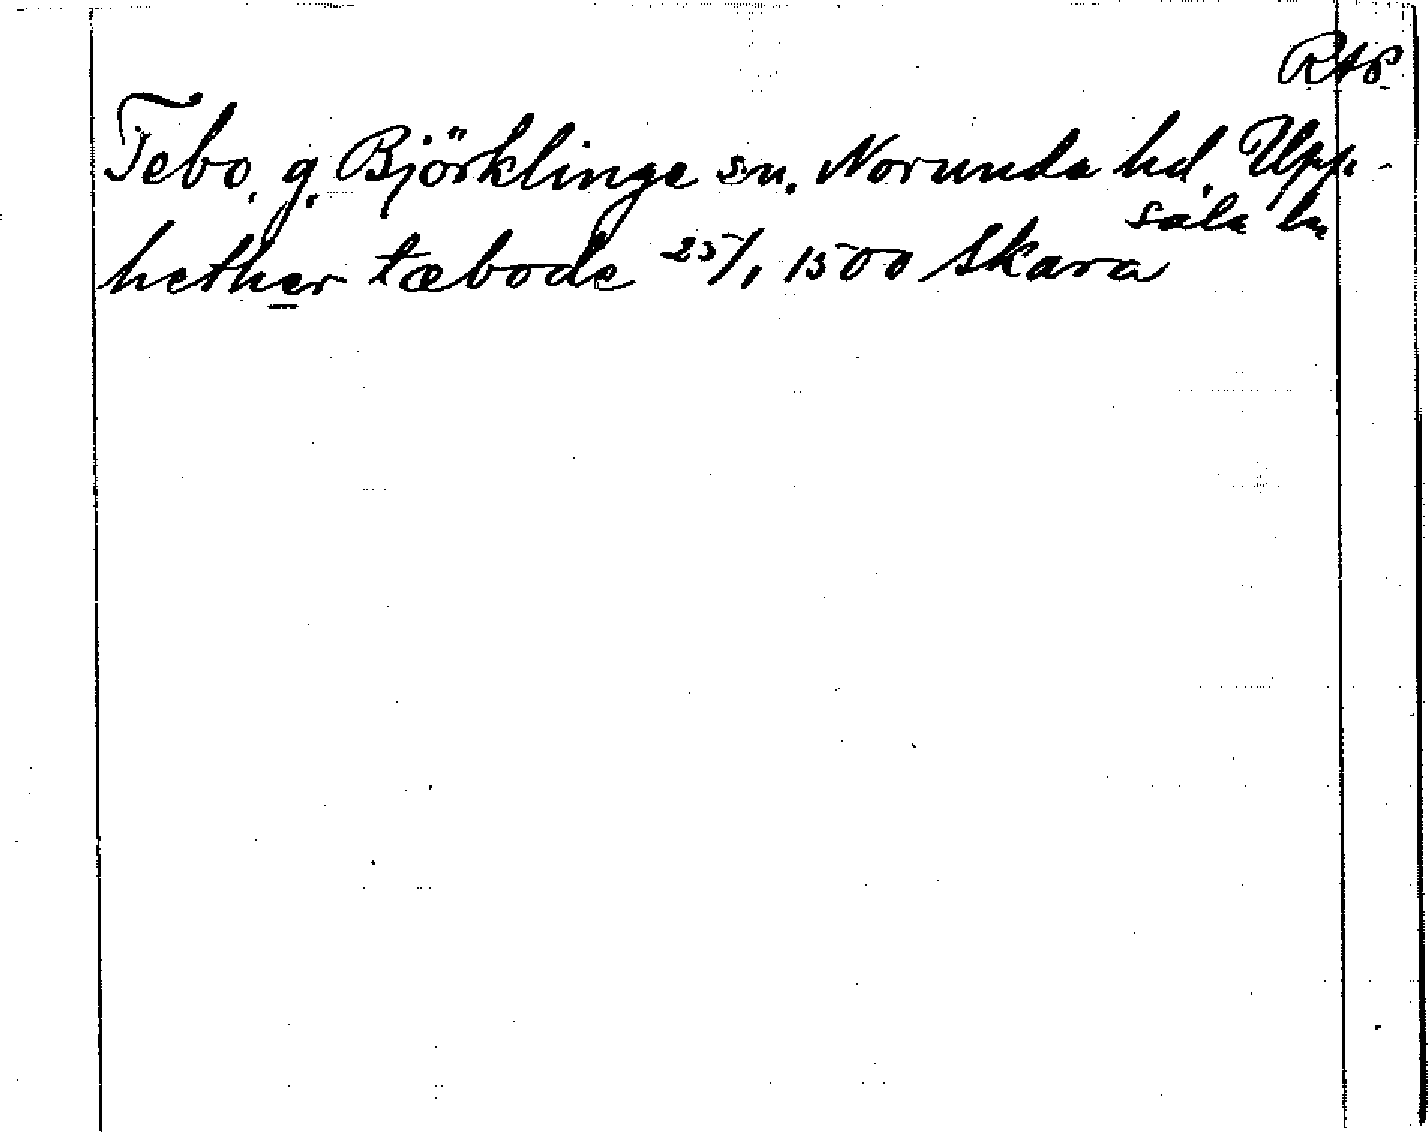 RAP
Tebo, g. Björklinge sn. Norunda hd. Upp-
sala ln
hether tæbode 25/1 1500 Skara